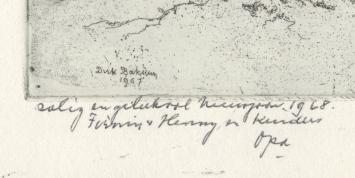 Dirk Baksteen
1967
zalig en gelukkol nieuwjaar. 1968.
Fonnin & Henny en kinders
Opa